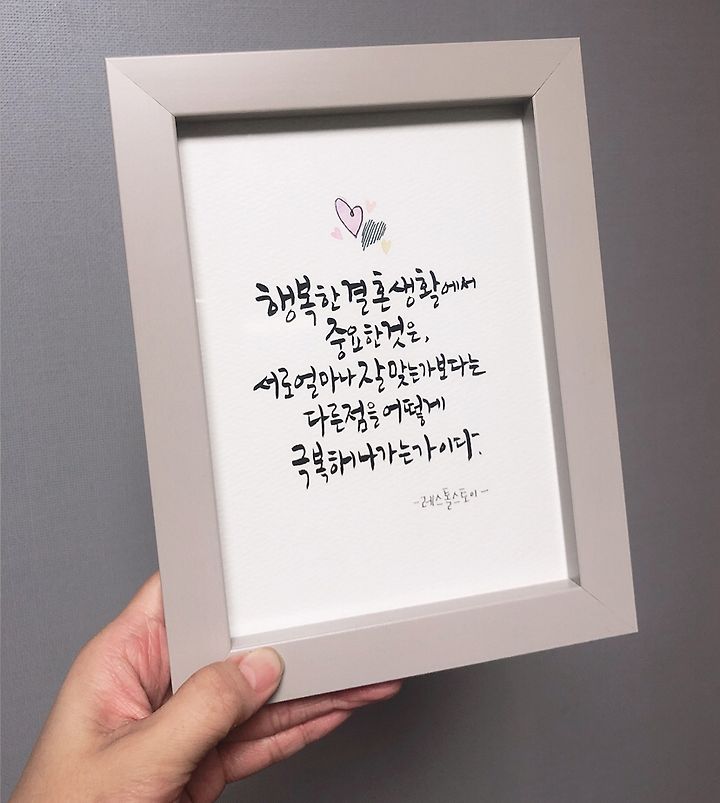 행복한 결혼 생활에서
중요한 것은,
서로 얼마나 잘 맞는가보다는
다른점을 어떻게
극복해나가는가이다.
-레스톨스토이-